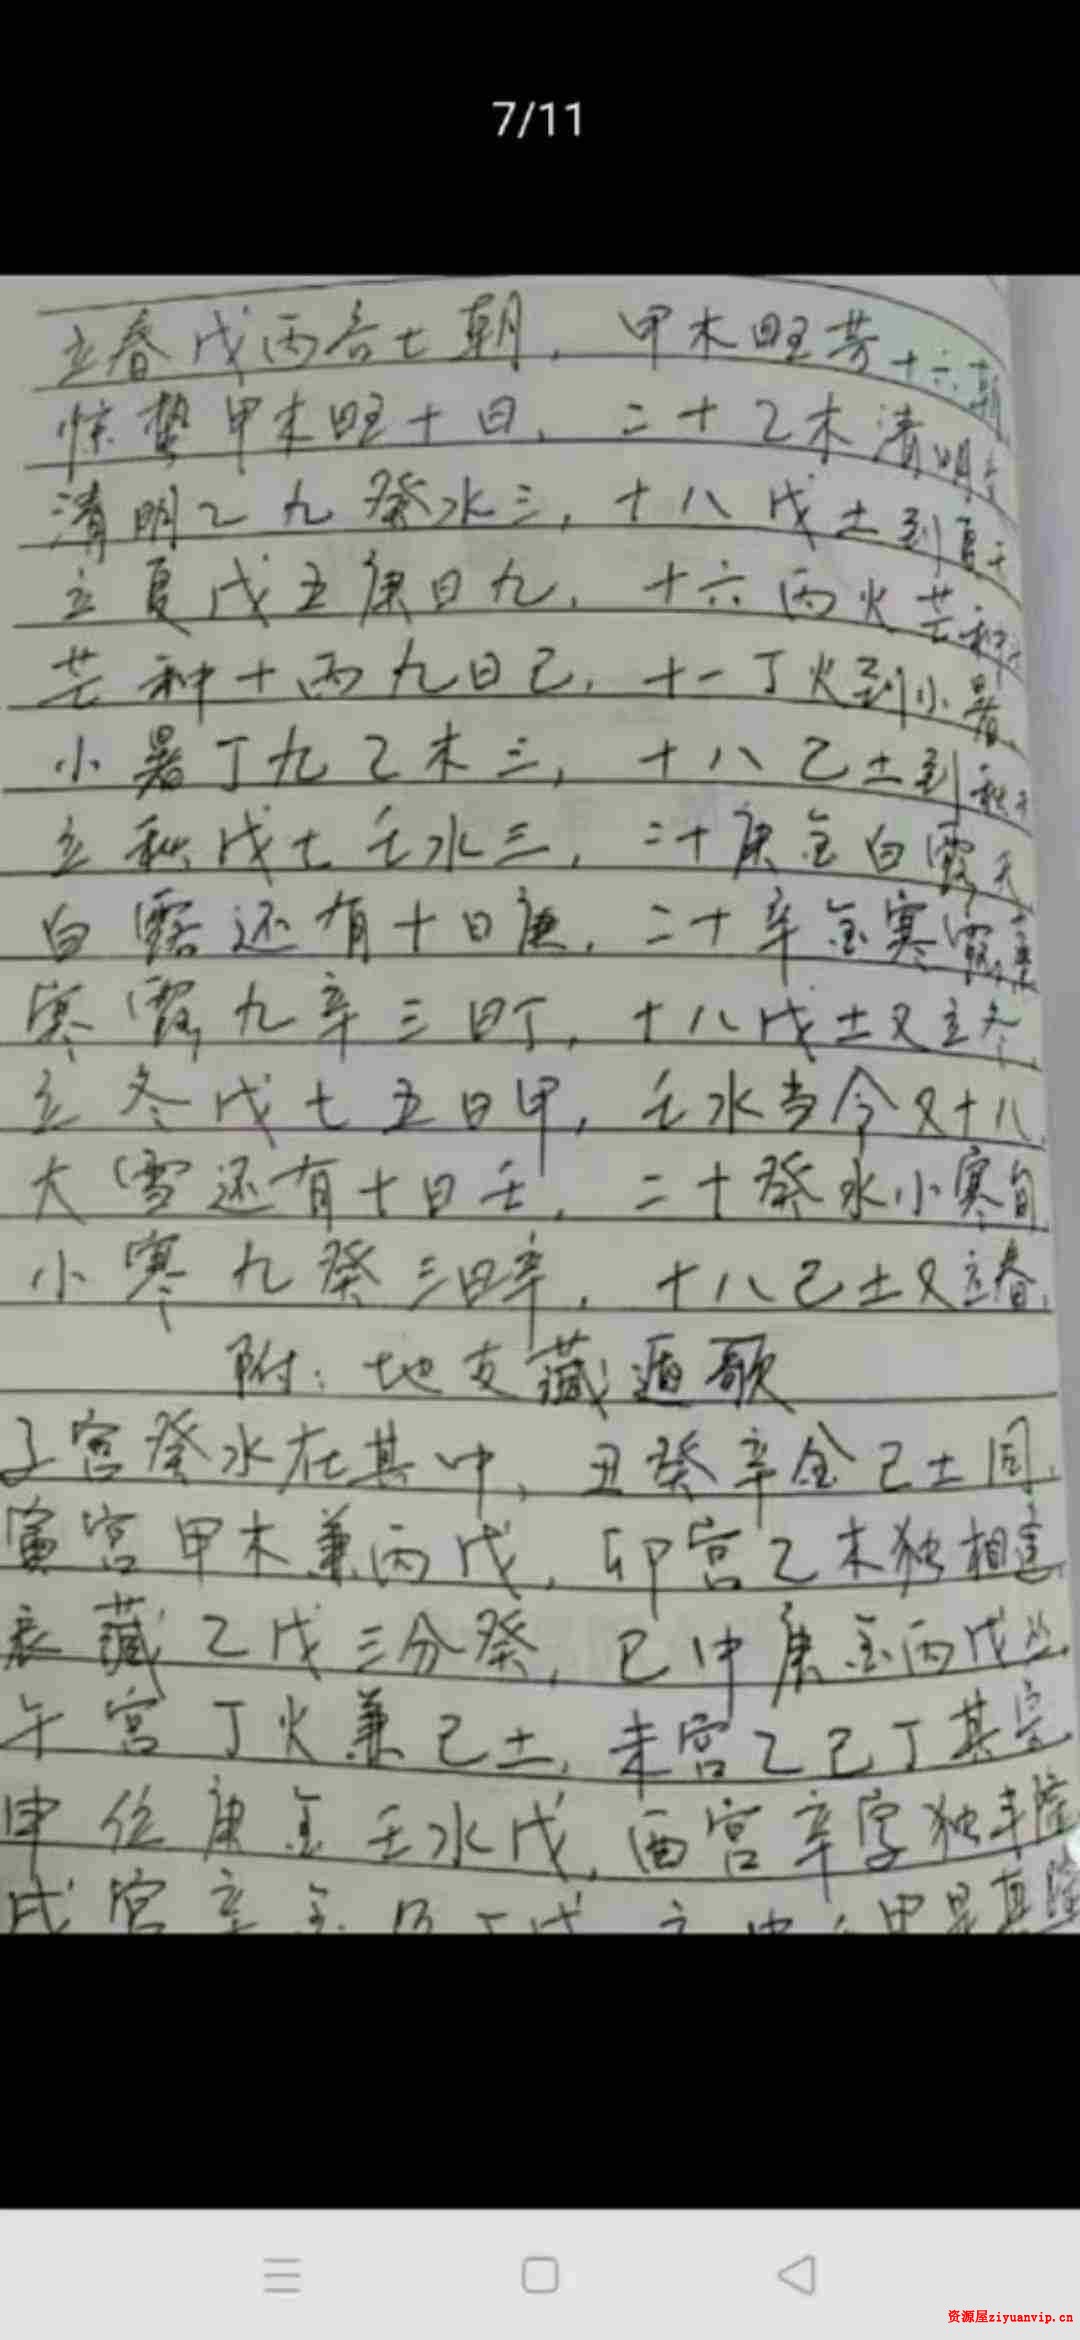 7/11
立春戊丙各七朝，甲木旺芳十六朝
惊蛰甲木旺十日，二十乙木清明
清明乙九癸水三，十八戊土到夏天
立夏戊五庚日九，十六丙火芒种
芒种十丙九日己，十一丁火到小暑
小暑丁九乙木三，十八己土到秋天
立秋戊七壬水三，二十庚金白露天
白露还有十日庚，二十辛金寒露
寒露九辛三日丁，十八戊土又立冬
立冬戊七五日甲，壬水当令又十八
大雪还有十日壬，二十癸水小寒旬
小寒九癸三日辛，十八己土又立春
附：地支藏遁歌
子宫癸水在其中，丑癸辛金己土同
寅宫甲木兼丙戊，卯宫乙木独相逢
辰藏乙戊三分癸，巳中庚金丙戊丛
午宫丁火兼己土，未宫乙己丁其宗
申位庚金壬水戊，酉宫辛字独丰隆
戌宫辛金及丁戊
资源屋ziyuanvip.cn